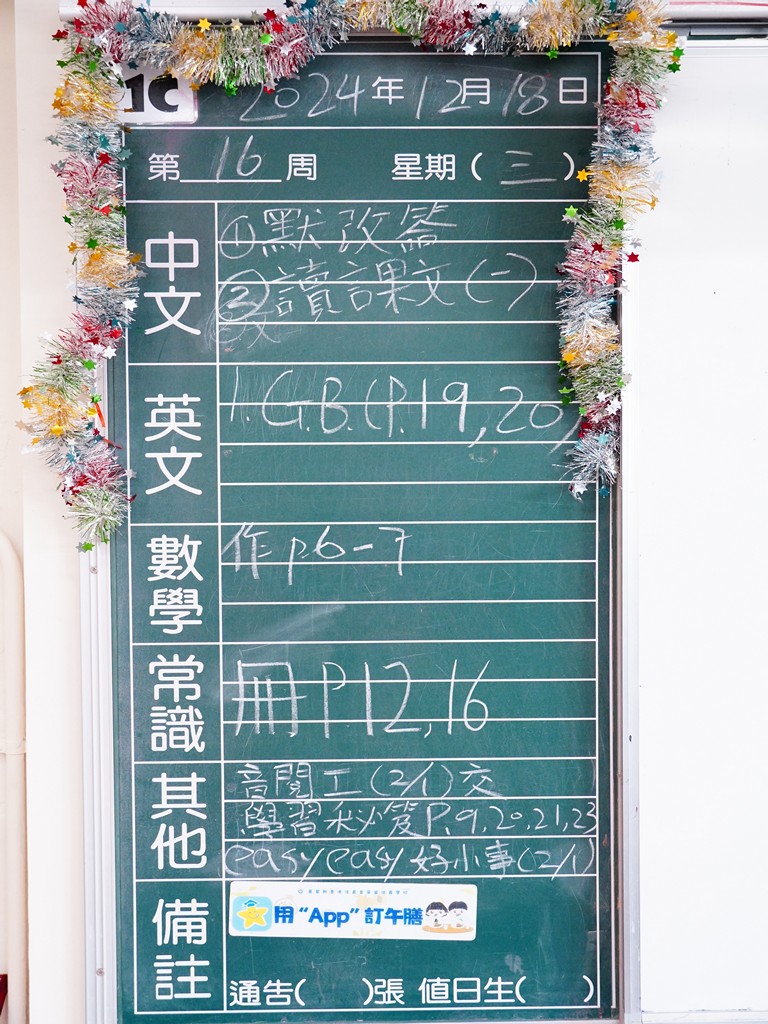 1C
2024年12月18日
第16周 星期(三)
中文
①默改簽
②讀課文(一)
英文
1. G.B. (P.19,20)
數學
作 p.6-7
常識
冊 P.12,16
其他
音閱工(2/1)交
學習秘笈P.9,20,21,23
easyeasy好小事(2/1)
備註
用“App”訂午膳
通告( )張 值日生( )